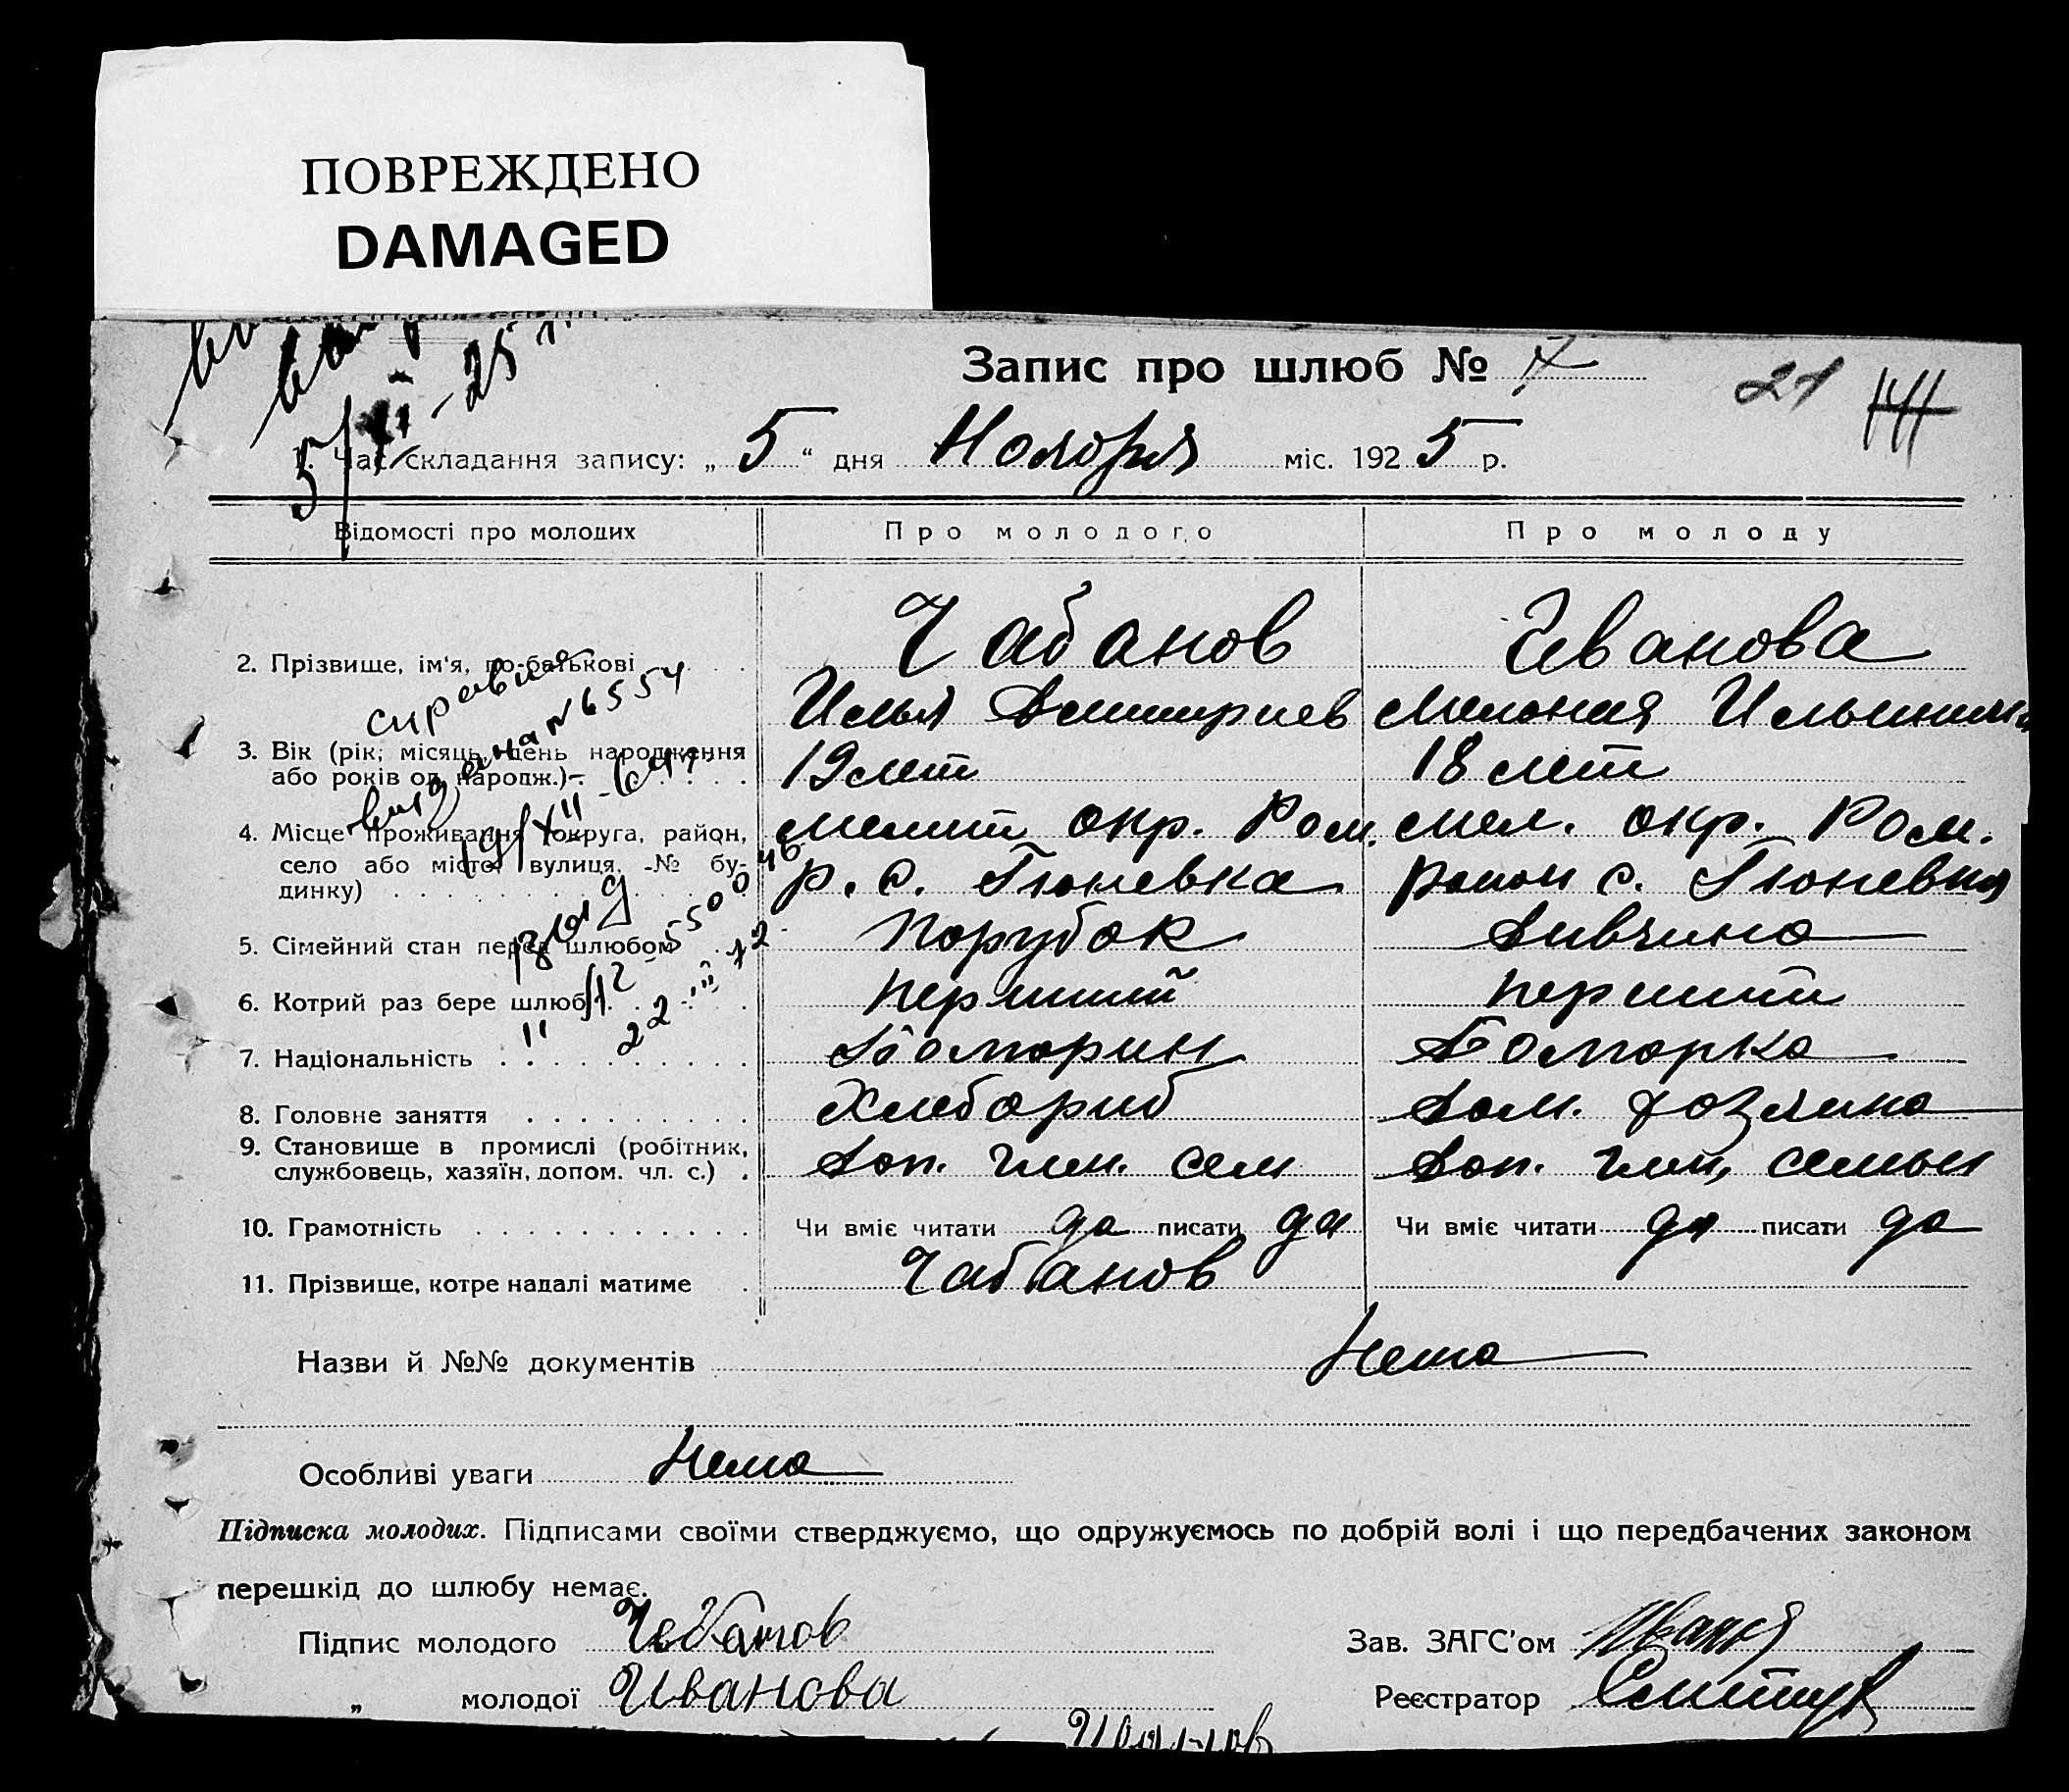 ПОВРЕЖДЕНО
DAMAGED
Запис про шлюб № 7
21
1. Час складання запису: „ 5 “ дня Ноября міс. 1925 р.
Відомості про молодих Про молодого Про молоду
2. Прізвище, ім'я, по-батькові Чабанов Иванова
Илья Дмитриев Мелония Ильинична
3. Вік (рік, місяць, день народження
або років од народж.) 19 лет 18 лет
4. Місце проживання (округа, район, Мелит окр. Ром. Мел. окр. Ром.
село або місто, вулиця, № бу-
динку) р. с. Гюневка район с. Гюневка
5. Сімейний стан перед шлюбом Порубок Дивчина
6. Котрий раз бере шлюб Перший Перший
7. Національність Болгорин Болгорка
8. Головне заняття Хлебориб Дом. хозяйка
9. Становище в промислі (робітник,
службовець, хазяїн, допом. чл. с.) Доп. член. сем Доп. член. семьи
10. Грамотність Чи вміє читати да писати да Чи вміє читати да писати да
11. Прізвище, котре надалі матиме Чабанов
Назви й №№ документів Нема
Особливі уваги Нема
Підписка молодих. Підписами своїми стверджуємо, що одружуємось по добрій волі і що передбачених законом
перешкід до шлюбу немає.
Підпис молодого Чабанов Зав. ЗАГС'ом
„ молодої Иванова Реєстратор
справка
выдана № 6554